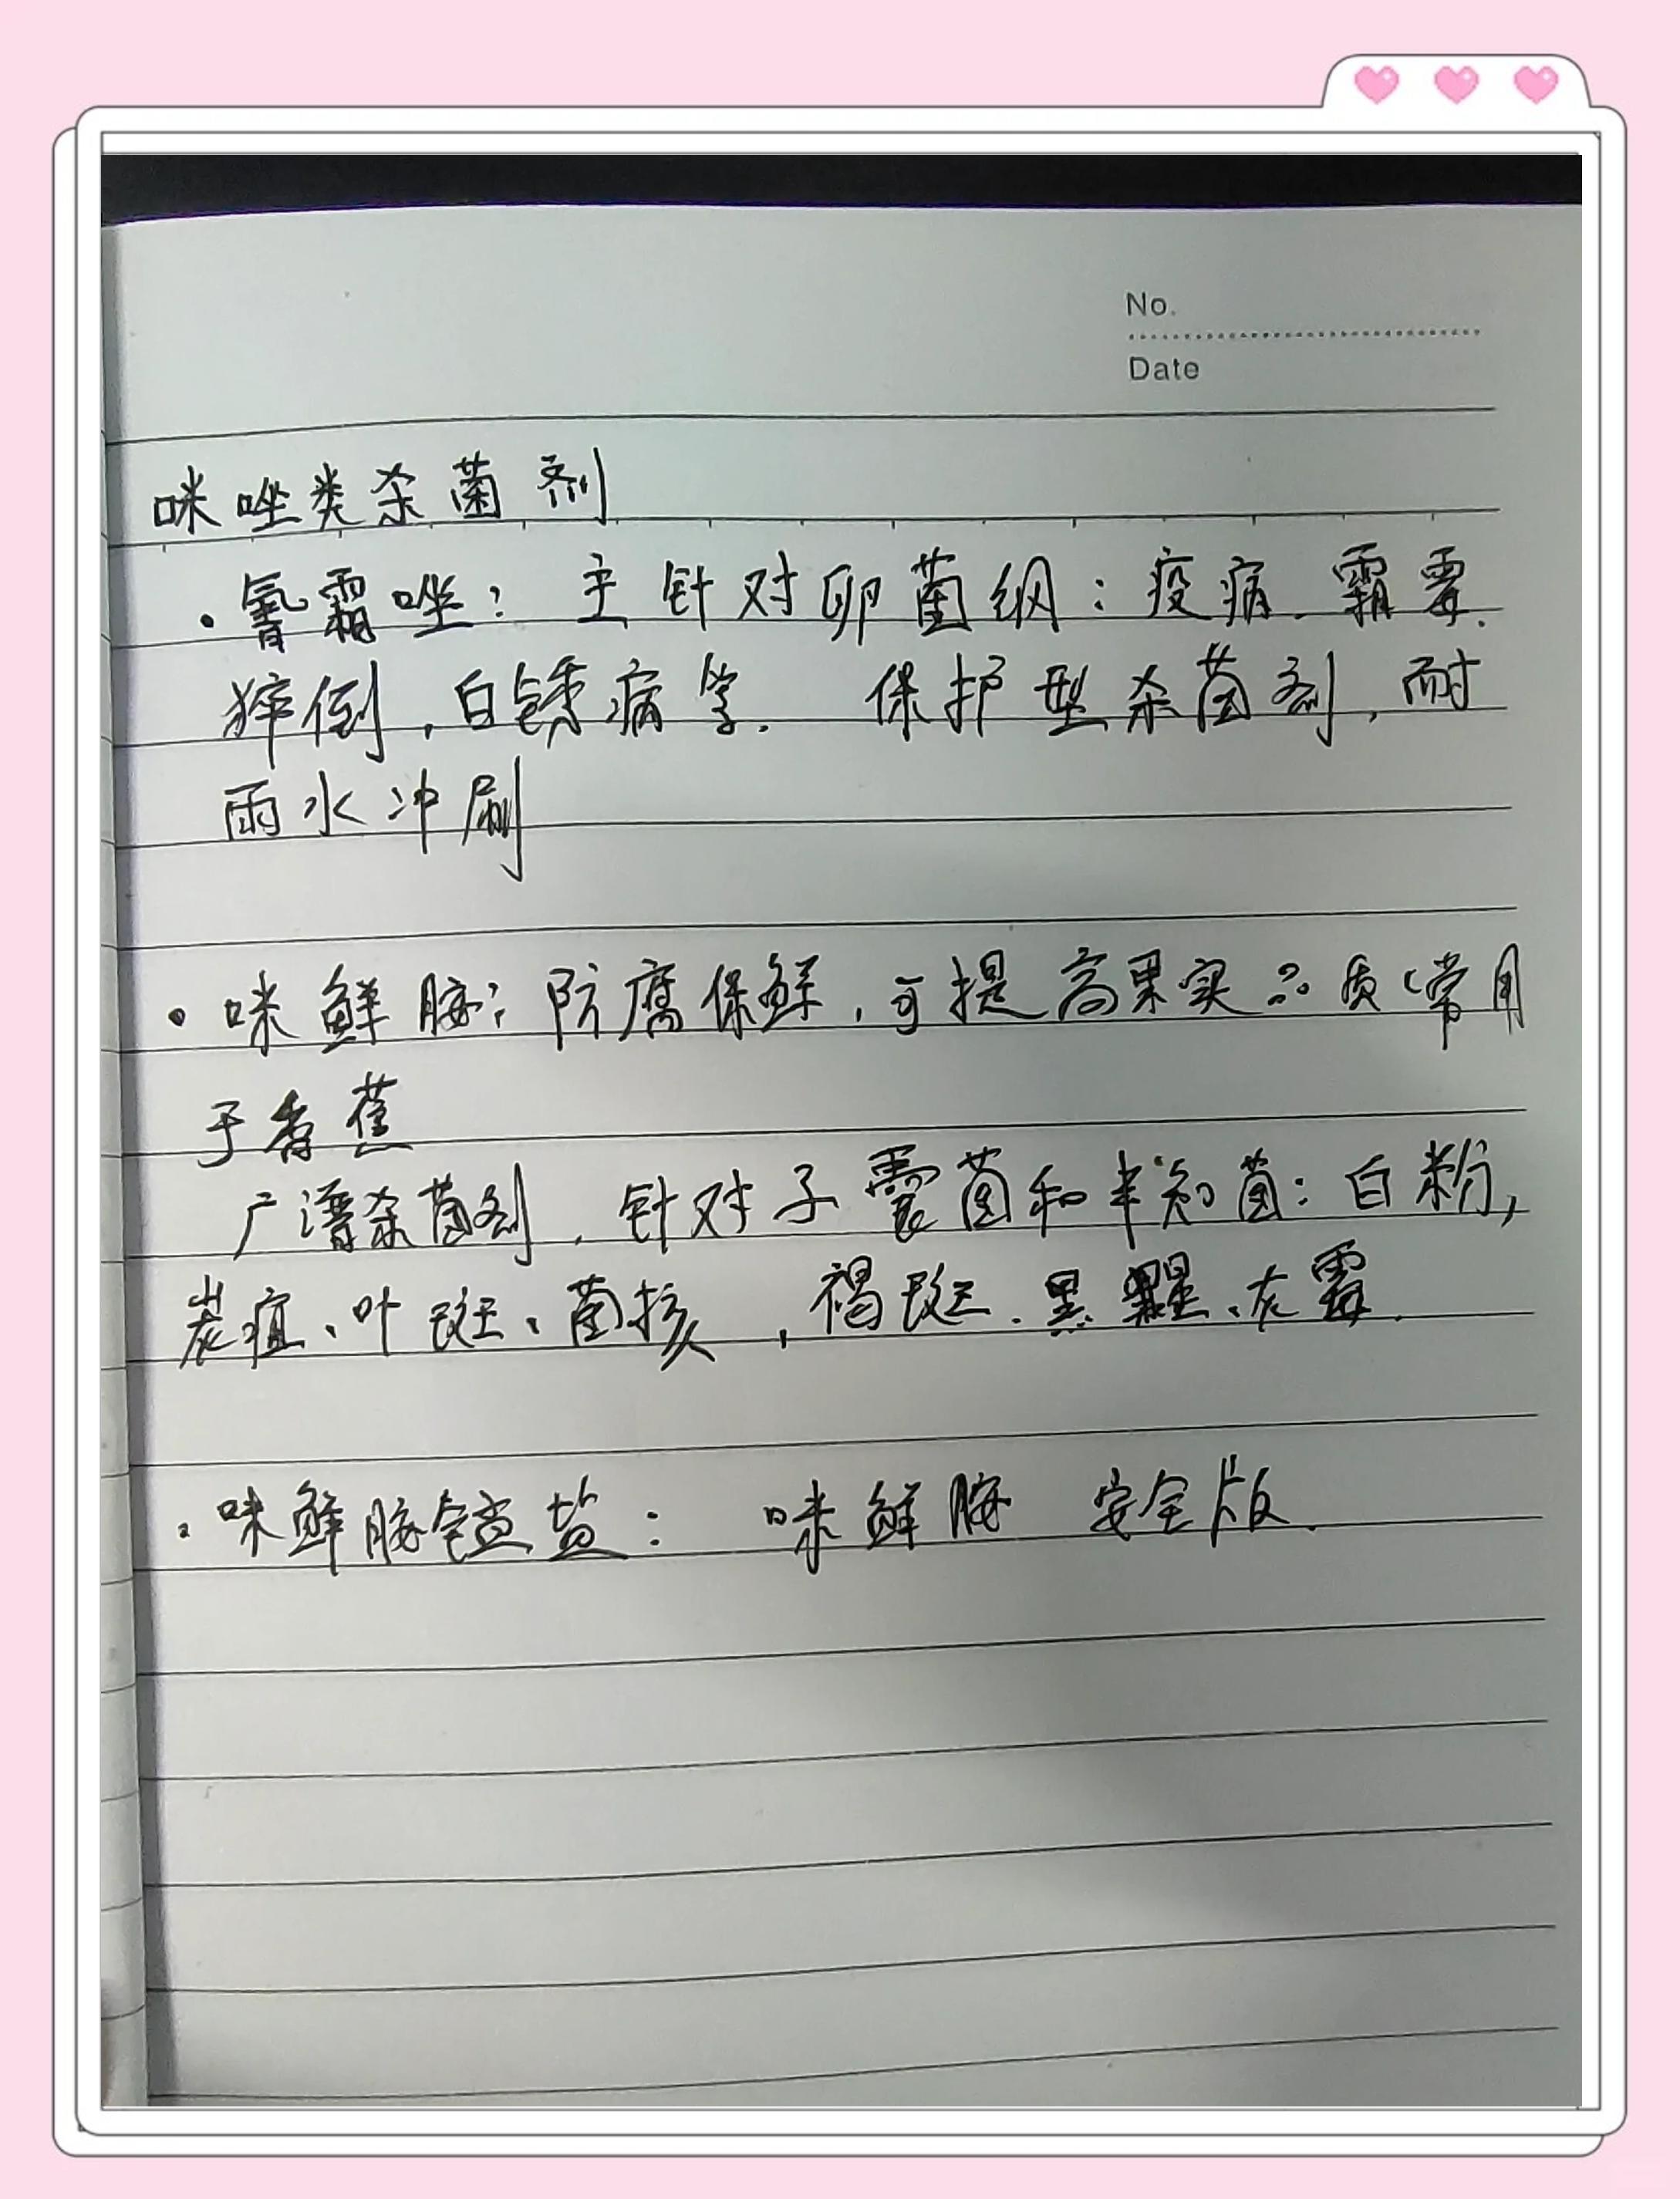 No.
Date
咪唑类杀菌剂
· 氰霜唑：主针对卵菌纲：疫病、霜霉、
猝倒，白锈病等. 保护型杀菌剂，耐
雨水冲刷
· 咪鲜胺：防腐保鲜，可提高果实品质（常用
于香蕉
广谱杀菌剂，针对子囊菌和半知菌：白粉，
炭疽、叶斑、菌核，褐斑、黑星、灰霉.
· 咪鲜胺锰盐： 咪鲜胺 安全版.